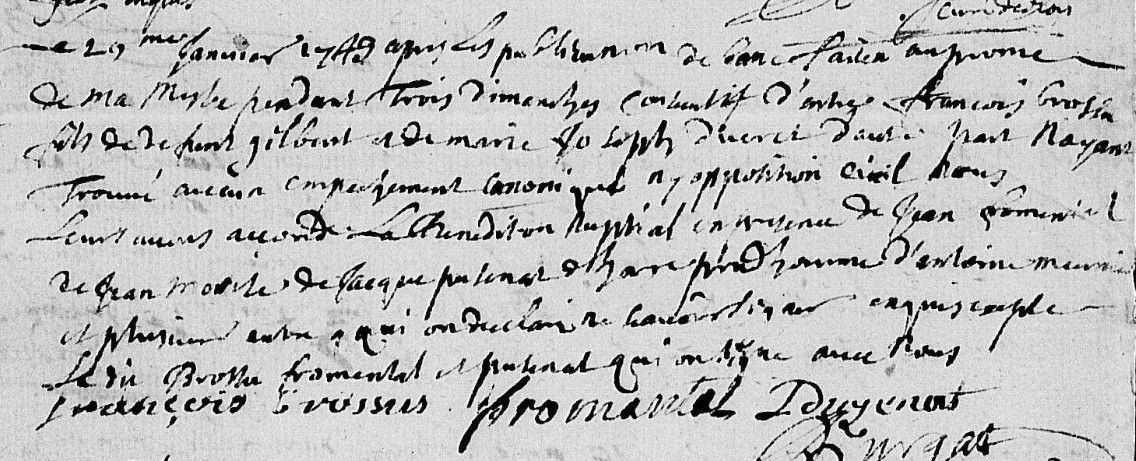 Le 29 me Janvier 1748 apres les publication de banc faitte au prone
de ma Messe pendant Trois dimanches consecutif d'entre francois brossu
fils de defunt gilbert et de marie Joseph ducret d'autre part Nayant
Trouvé aucun empechement canonique ny oppotition civil Nous
Leurs avons accorde La Benediton Nuptial en presence de Jean fromental
De Jean de Jacque putenat d'antoine meunie
et plusieur autre qui on declaire ne scavoir signer enquis excepte
Le dit Brossu fromental et putenat qui on signe avec Nous
francois Brossus fromantal